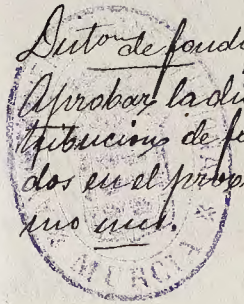 Duton de fondo
Aprobar la dis
tribucion de fo
dos en el proxi
mo mes.
MURCIA